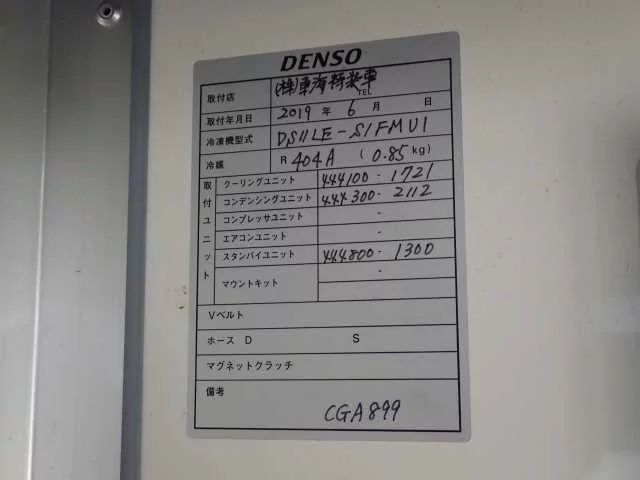 DENSO
取付店 (株)東海特装車 TEL
取付年月日 2019 年 6 月 日
冷凍機型式 DS11LE-S1FMU1
冷媒 R 404A ( 0.85 kg)
取付ユニット
クーリングユニット 444100-1721
コンデンシングユニット 444300-2112
コンプレッサユニット -
エアコンユニット -
スタンバイユニット 444800-1300
マウントキット
Vベルト
ホース D S
マグネットクラッチ
備考
CGA899